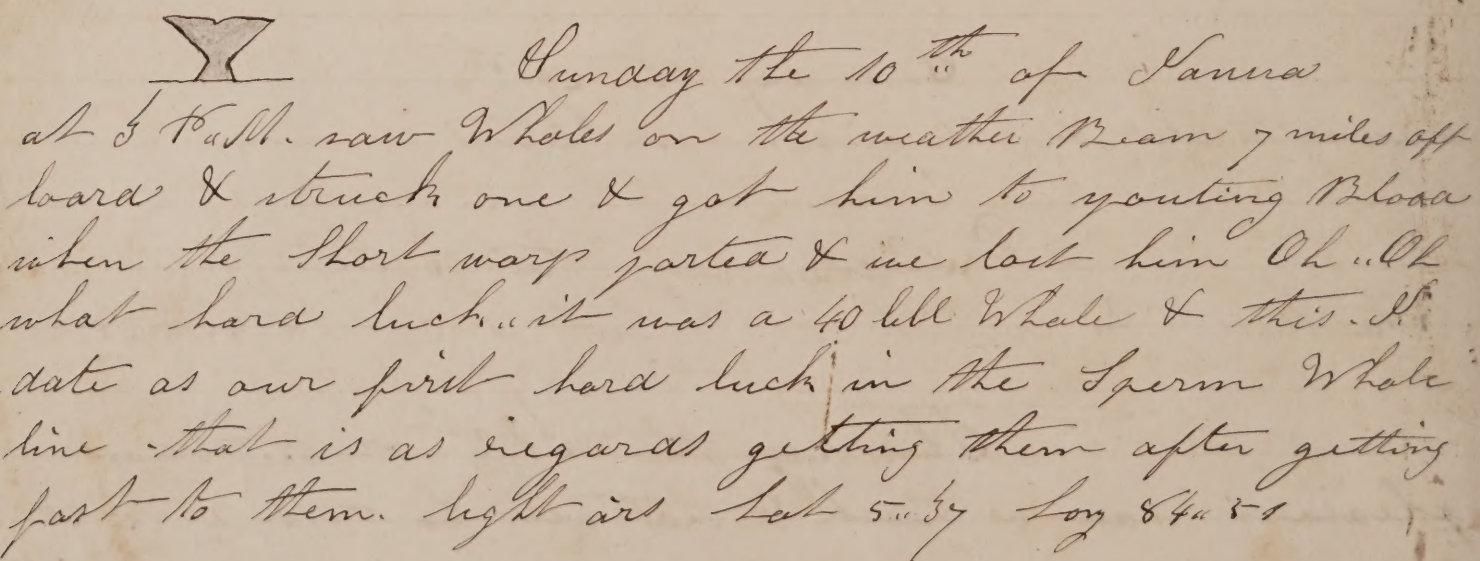 Sunday the 10th of Janura
at 3 P.M. saw Whales on the weather Beam 7 miles off
loard & struck one & got him to spouting Blood
when the Short warp parted & we lost him Oh "Oh
what hard luck "it was a 40 bbl Whale & this. I.
date as our first hard luck in the Sperm Whale
line - that is as regards getting them after getting
fast to them. light airs Lat 5"37 Long 84"51